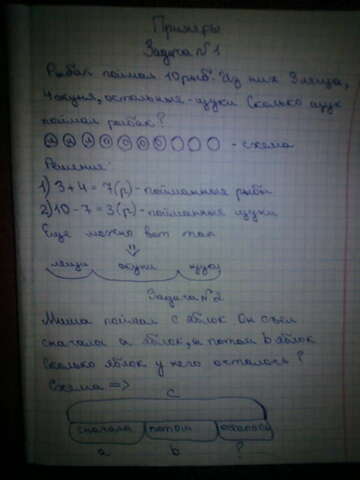 Примеры
Задача №1
Рыбак поймал 10 рыб. Из них 3 леща,
4 окуня, остальные - щуки Сколько щук
поймал рыбак?
- схема
Решение:
1) 3+4=7(р)- пойманные рыбы
2) 10-7=3(р)- пойманные щуки
Еще можно вот так
лещи окуни щуки
Задача №2
Миша поймал с яблок Он съел
сначала а яблок, а потом b яблок
Сколько яблок у него осталось?
Схема =>
с
сначала потом осталось
а b ?